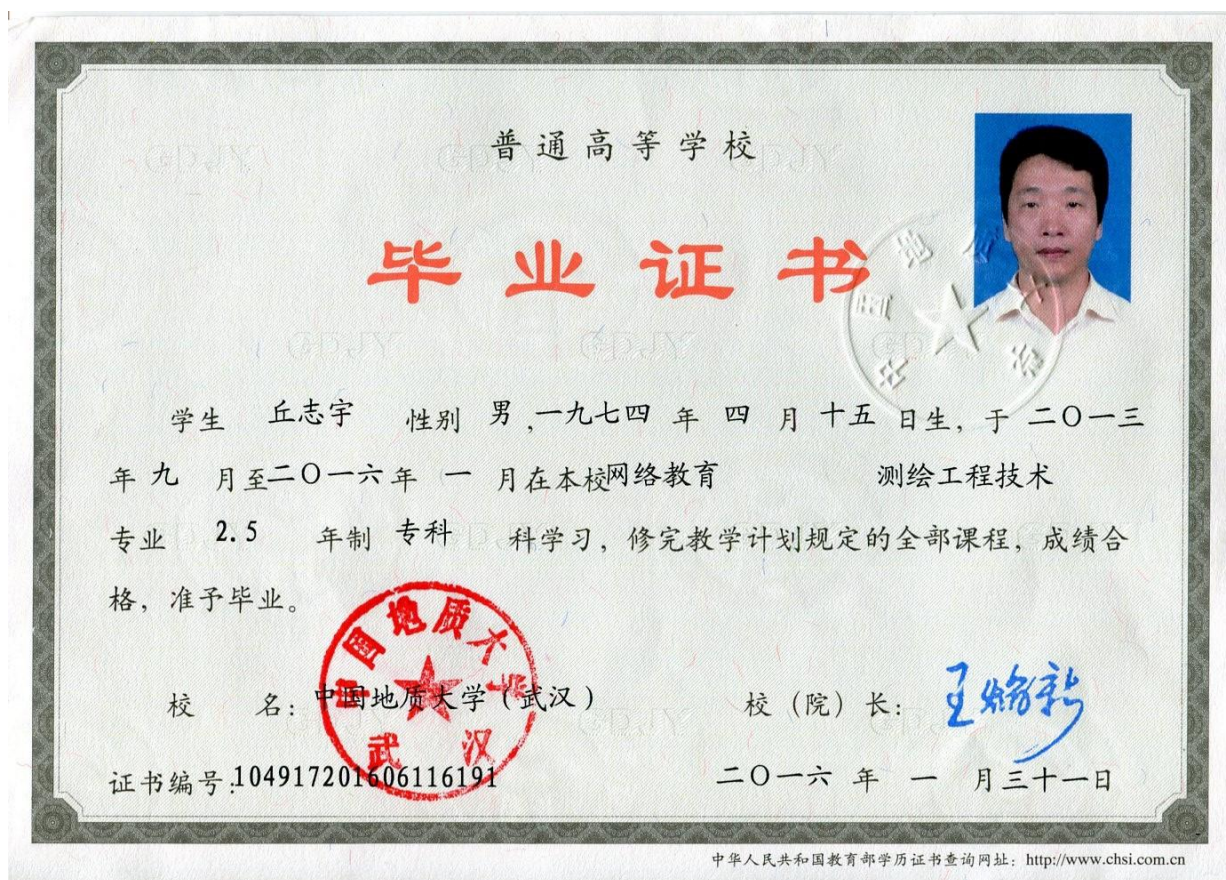 普通高等学校
毕业证书
学生 丘志宇 性别 男，一九七四 年 四 月 十五 日生，于 二〇一三
年 九 月至二〇一六年 一 月在本校网络教育 测绘工程技术
专业 2.5 年制 专科 科学习，修完教学计划规定的全部课程，成绩合
格，准予毕业。
中国地质大学
武汉
校 名：中国地质大学（武汉） 校（院）长：
证书编号：104917201606116191 二〇一六 年 一 月三十一日
中华人民共和国教育部学历证书查询网址：http://www.chsi.com.cn